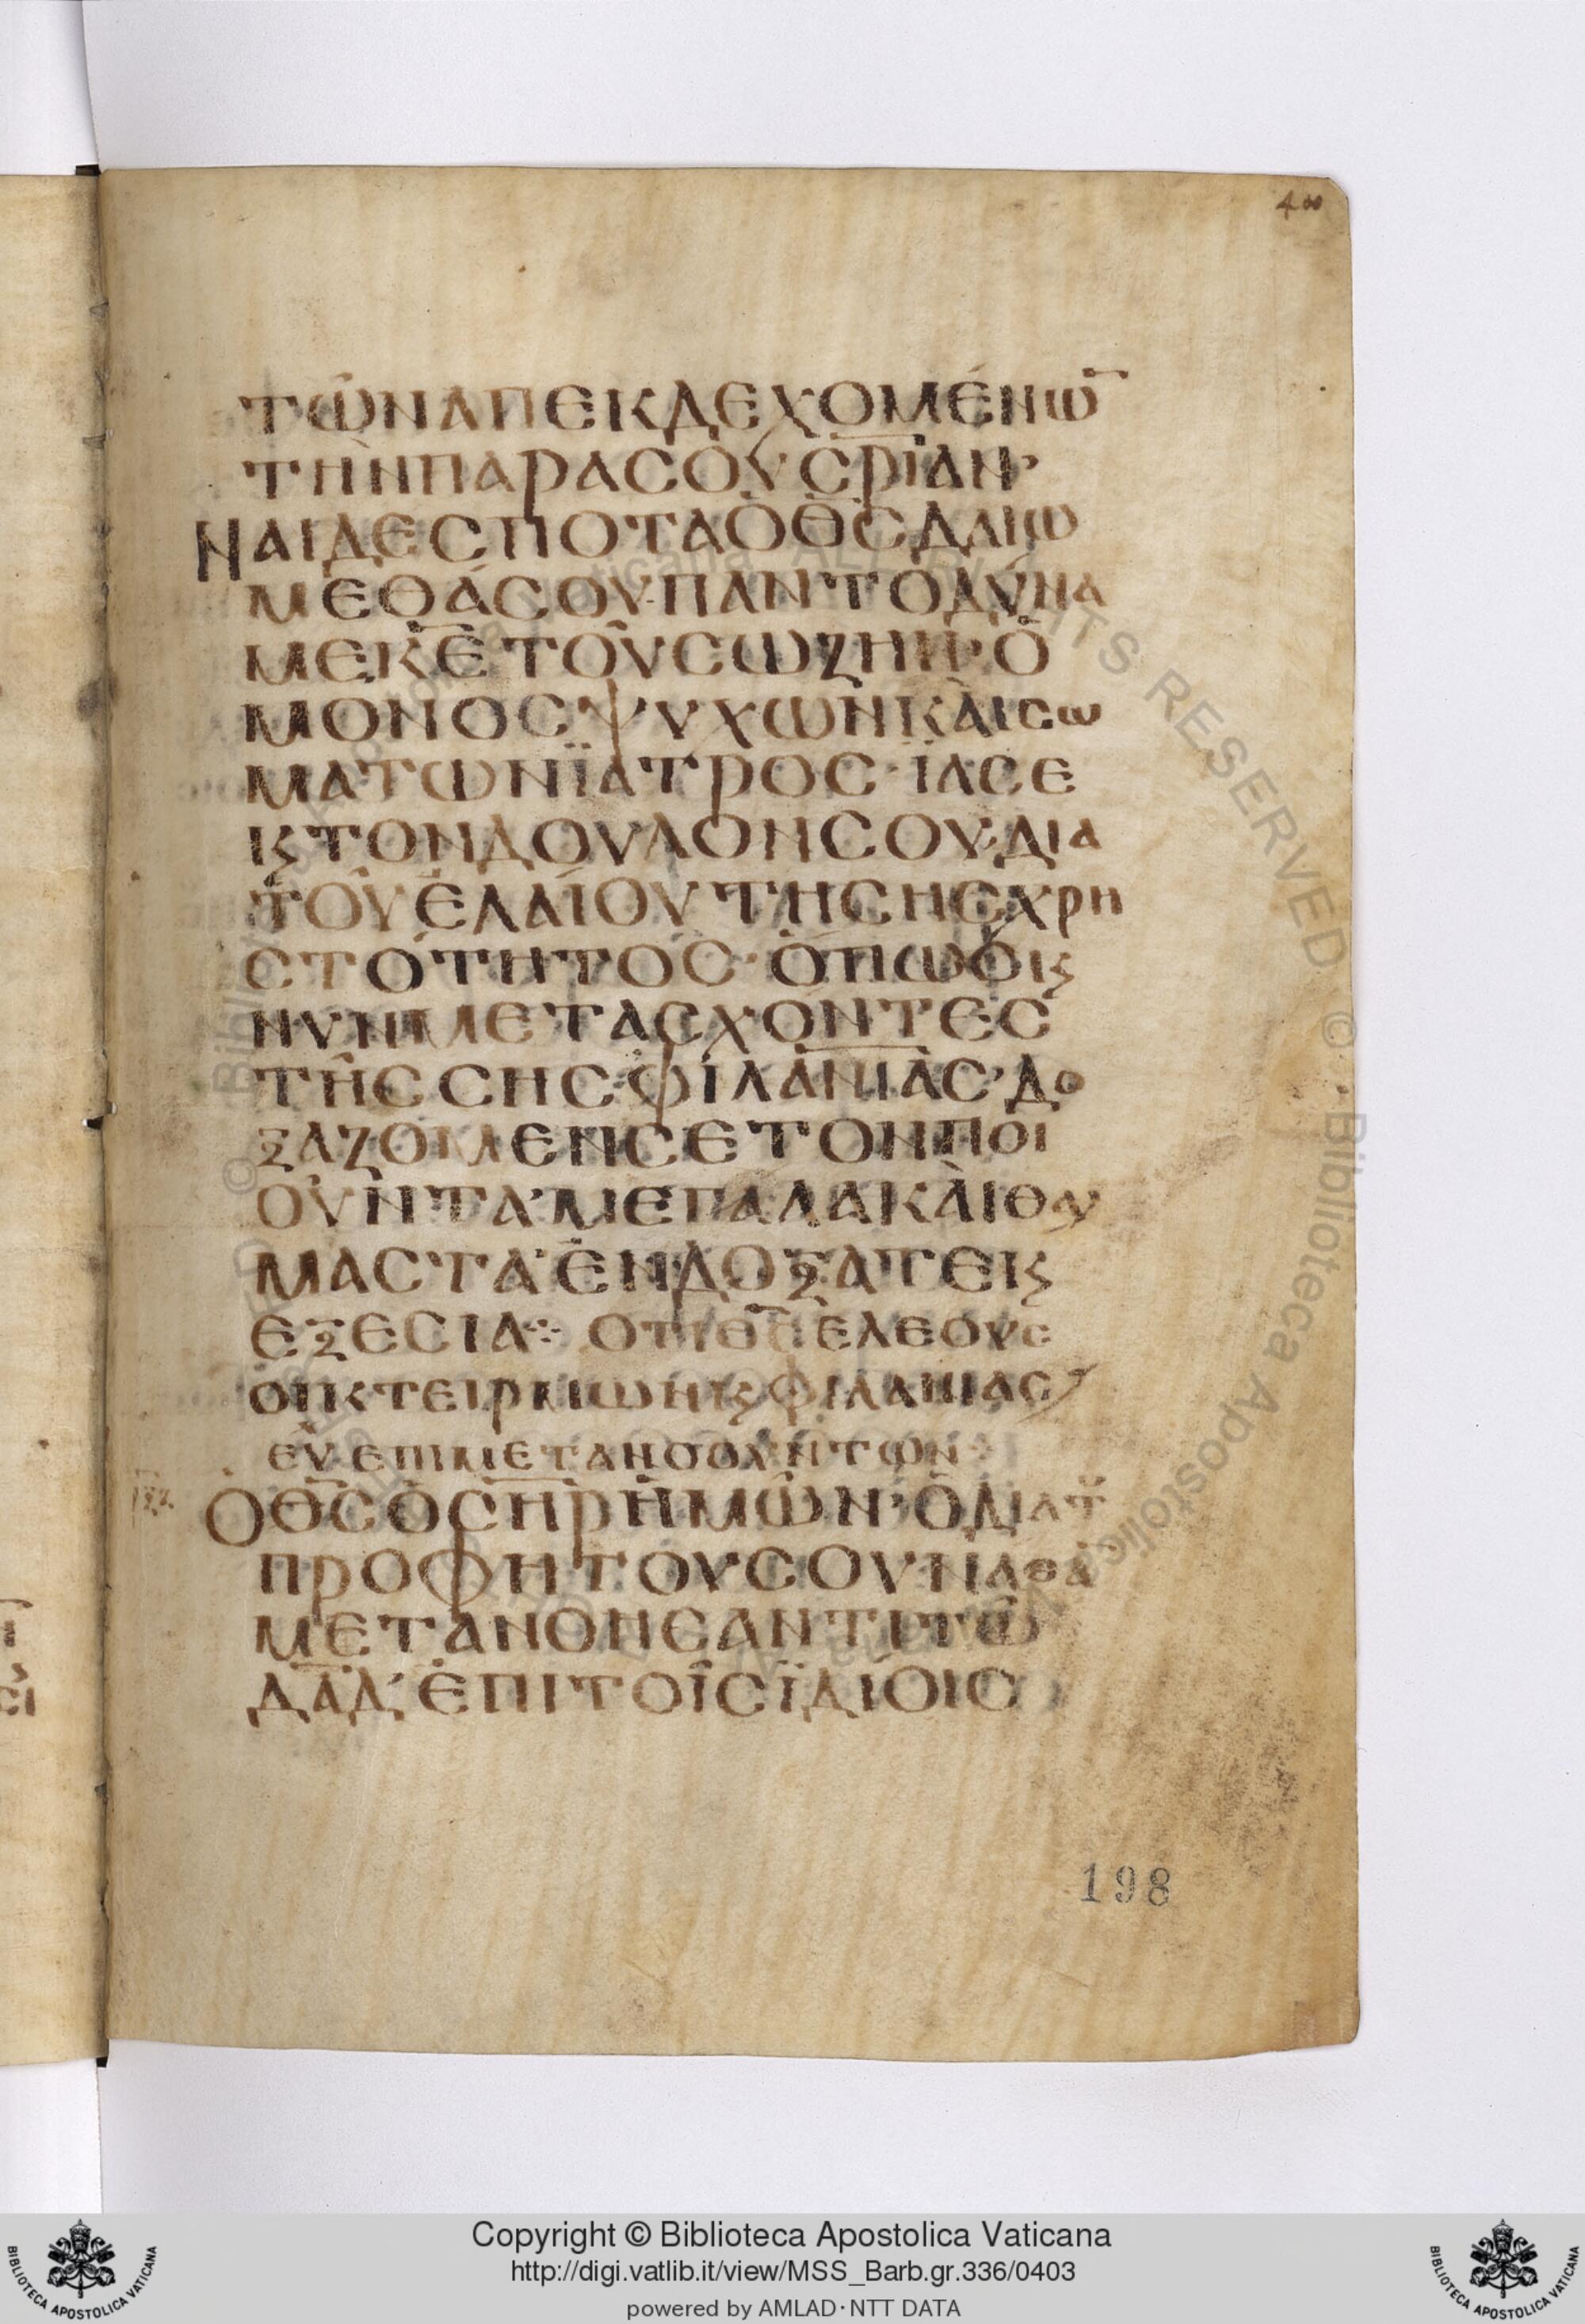 400
ΤῶΝΑΠΕΚΔΕΧΟΜέΝω̅
ΤὴΝΠΑΡΑΣΟῦΣ̅Ρ̅ΙΑΝ·
ΝΑΙΔΕΣΠΟΤΑὁΘ̅Σ̅ΔΑΙΩ
ΜΕΘάΣΟΥ·ΠΑΝΤΟΔύΝΑ
ΜΕΚ̅Ε̅ΤΟῦΣΩΖΗΝ·ὁ
ΜόΝΟΣΨΥΧῶΝΚΑὶΣω
ΜΑΤΩΝΪΑΤΡΟΣ·ἵΑΣΕ
ΚϚΤΟΝΔΟΥΛΟΝΣΟΥ·ΔΙΑ
ΤΟῦἐΛΑίΟΥΤῆΣΣῆΣΧΡΗ
ΣΤόΤΗΤΟΣ·ὅΠΩΣΚϚ
ΝΥΝΜΕΤΑΣΧόΝΤΕΣ
ΤῆΣΣΗΣΦΙΛΑ̅Ν̅ΙΑΣ·ΔΟ
ΞΑΖΟΜΕΝΣΕΤΟΝΠΟΙ
ΟῦΝΤΑ·ΜΕΓΑΛΑΚΑὶΘΑΥ
ΜΑΣΤΑ·ἔΝΔΟΞΑΤΕΚϚ
ΕΞΕΣΙΑ· ΟΤΙΘ̅Σ̅ἐΛΕΟΥΣ
ΟΙΚΤΕΙΡΜΩΝΚϚΦΙΛΑΝΙΑΣ
ΕΥ̅ΕΠΙΜΕΤΑΝΟΟΥΝΤΩΝ
ὉΘ̅Σ̅ὁΣ̅Η̅Ρ̅ἡΜῶΝ·ὁΔΙΑΤȣ
ΠΡΟΦΗΤΟΥΣΟΥΝΑΘΑ̅
ΜΕΤΑΝΟΗΣΑΝΤΙΤῶ
Δ̅Α̅Δ̅·ἐΠΙΤΟῖΣΪΔΙΟΙΣ
198
Copyright © Biblioteca Apostolica Vaticana
http://digi.vatlib.it/view/MSS_Barb.gr.336/0403
powered by AMLAD·NTT DATA
BIBLIOTECA APOSTOLICA VATICANA
BIBLIOTECA APOSTOLICA VATICANA